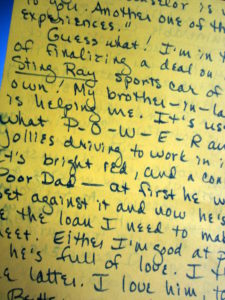 to you. Another one of th
experiences."
Guess what! I'm in t
of finalizing a deal on
Sting Ray sports car of
own! My brother-in-la
is helping me. It's usu
what P-O-W-E-R an
jollies driving to work in i
It's bright red, and a con
Poor Dad — at first he w
set against it and now he's
e the loan I need to mak
eet. Either I'm good at p
he's full of love. I f
e latter. I love him t